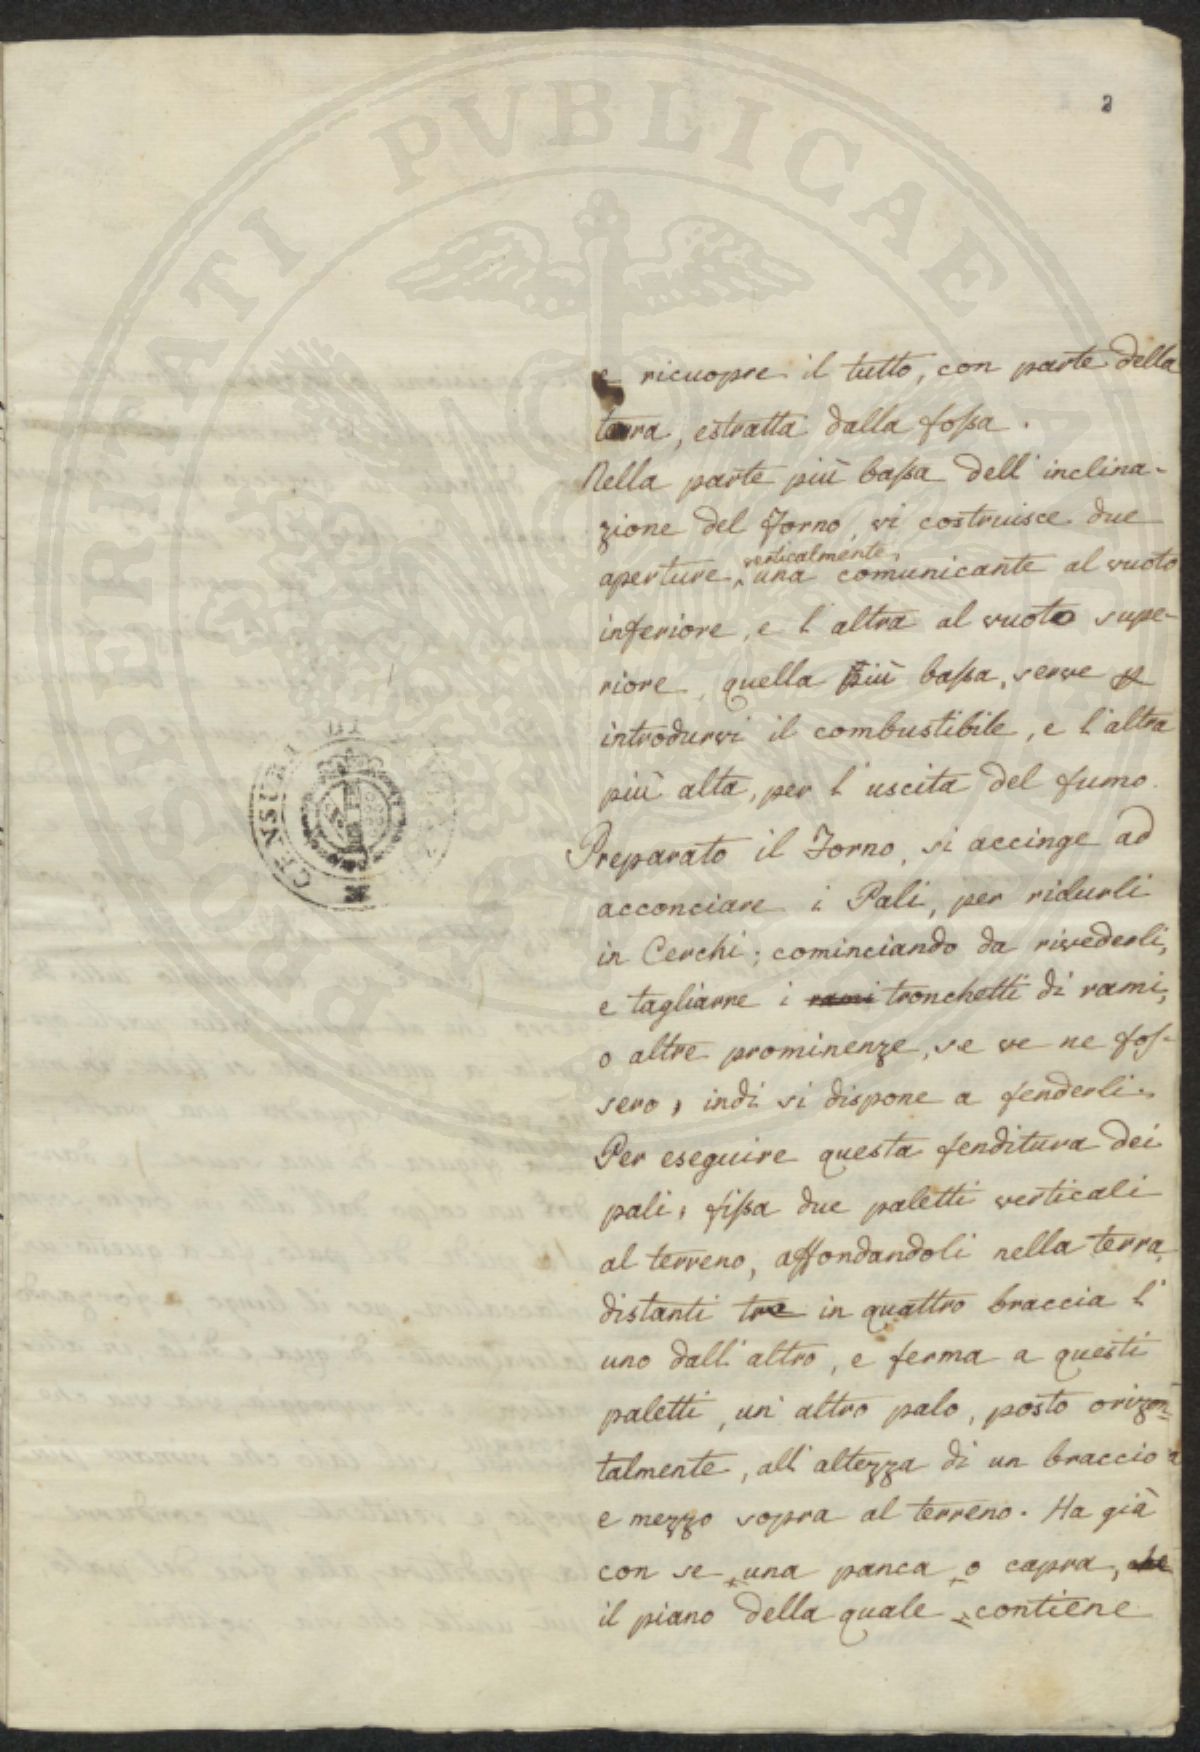 PROSPERITATI PVBLICAE
2
e ricuopre il tutto, con parte della
terra, estratta dalla fossa.
Nella parte più bassa dell' inclina-
zione del Forno, vi costruisce due
verticalmente,
aperture, una comunicante al vuoto
inferiore, e l' altra al vuoto supe-
riore, quella più bassa, serve p
introdurvi il combustibile, e l' altra
più alta, per l' uscita del fumo.
Preparato il Forno, si accinge ad
acconciare i Pali, per ridurli
in Cerchi; cominciando da rivederli,
e tagliarre i rami tronchetti di rami,
o altre prominenze, se ve ne fos-
sero, indi si dispone a fenderli.
Per eseguire questa fenditura dei
pali, fissa due paletti verticali
al terreno, affondandoli nella terra,
distanti tre in quattro braccia l'
uno dall' altro, e ferma a questi
paletti, un' altro palo, posto orizon=
talmente, all' altezza di un braccio
e mezzo sopra al terreno. Ha già
con se una panca o capra, che
il piano della quale contiene